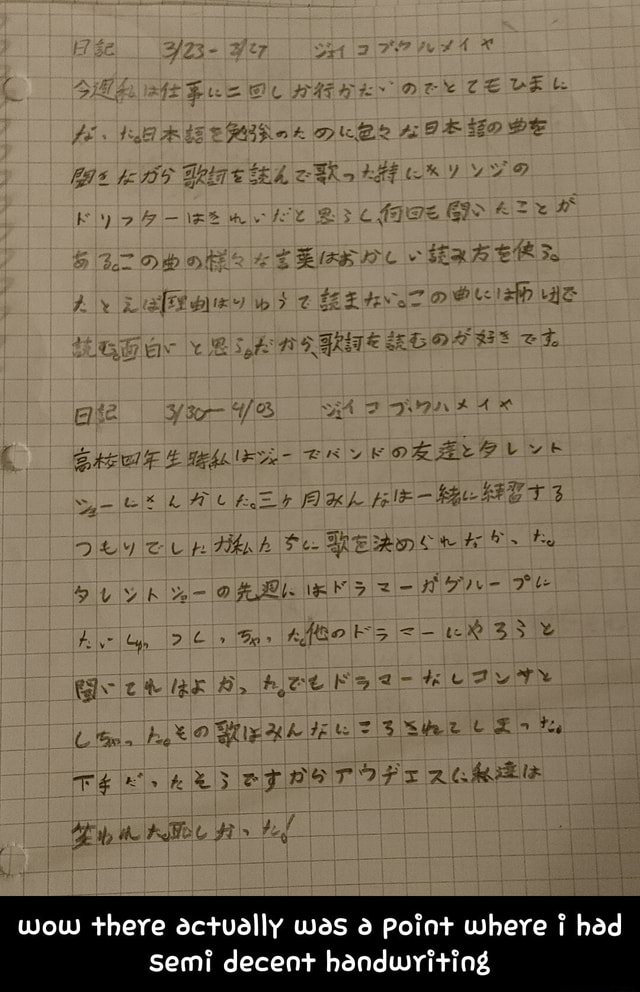 日記 3/23-3/27 ジェイコブ・ウルメイヤ
今週私は仕事に二回しか行かないのでとてもひまに
なった。日本語を勉強のために色々な日本語の曲を
聞きながら歌詞を読んで歌った。特にキリンジの
ドリフターはきれいだと思うし、何回も聞いたことが
ある。この曲の様々な言葉はおかしい読み方を使う。
たとえば「理由」はりゆうで読まない。この曲には「わけ」で
読む。面白いと思う。だから、歌詞を読むのが好きです。
日記 3/30-4/03 ジェイコブ・ウルメイヤ
高校四年生時私はジャーズバンドの友達とタレント
ショーにさんかした。三ヶ月みんなは一緒に練習する
つもりでしたが私たちに歌を決められなかった。
タレントショーの先週にはドラマーがグループに
だっしゅつしっちゃった。他のドラマーにやろうと
聞いてればよかった。でもドラマーなしコンサと
しちゃった。その歌はみんなにころされてしまった。
下手だったそうですからアウヂエスに私達は
笑われた。恥しかった!
wow there actually was a point where i had
semi decent handwriting